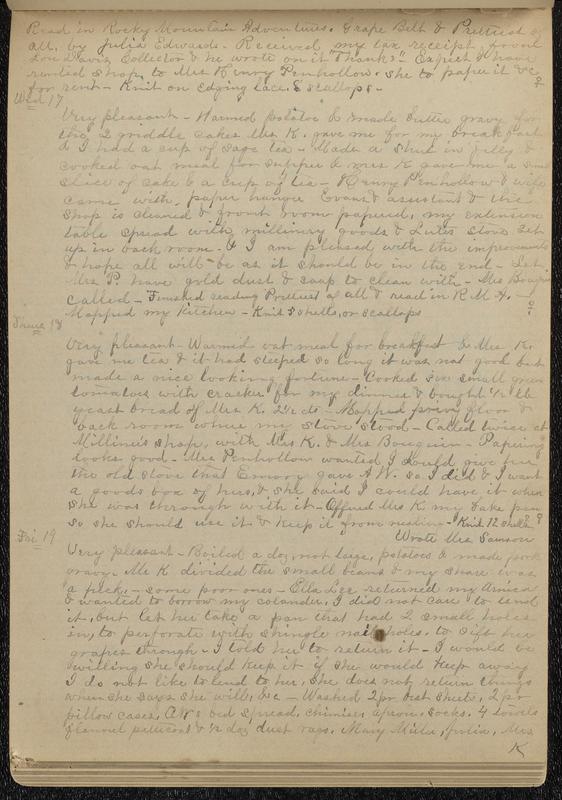 Read in Rocky Mountain Adventures. Grape Belt & Prettiest of
all, by Julia Edwards. Received my tax receipt from
Lou Davis Collector & he wrote on it "Thanks" - Expect I have
rented shop to Mrs Henry Penhollow. She to paper it &c
for rent - Knit on edging lace. 5 scallops -
Wed 17
Very pleasant - Warmed potatoe & made butter gravy for
the 2 griddle cakes Mrs K. gave me for my breakfast
& I had a cup of sage tea - Made a shue in jelly &
cooked oat meal for supper & Mrs K gave me a small
slice of cake & a cup of tea - Henry Penhollow & wife
came with paper hanger Evans & assistant & the
shop is cleaned & front room papered, my extension
table spread with millinery goods & stove set
up in back room. & I am pleased with the improvements
& hope all will be as it should be in the end - Let
Mrs P. have gold dust & soap to clean with - Mrs Bouquin
called - Finished reading Prettiest of all & read in R M A.
Mopped my kitchen - Knit 5 shells, or scallops
Thurs 18
Very pleasant - Warmed oat meal for breakfast & Mrs K.
gave me tea & it had steeped so long it was not good but
made a nice looking fortune - Cooked six small green
tomatoes with cracker for my dinner & bought ½ lb
yeast bread of Mrs K. 2½ cts - Mopped floor &
back room where my stove stood - Called twice at
Milline's shop, with Mrs K. & Mrs Bouquin - Papering
looks good - Mrs Penhollow wanted I should give her
the old stove that Emory gave A W. so I did & I want
a goods box of hers, & she said I could have it when
she was through with it - Offered Mrs K. my bake pan
so she should use it & keep it from rusting - Knit 12 shells
Wrote Mrs Samson
Fri 19
Very pleasant - Boiled a doz, not large, potatoes & made pork
gravy. Mr K divided the small beans & my share was
a peck, - some poor ones - Ella Lee returned my Arnica
& wanted to borrow my colander, I did not care to lend
it, but let her take a pan that had 2 small holes
in, to perforate with shingle nail holes. to sift her
grapes through - I told her to return it - I would be
willing she should keep it if she would keep away
I do not like to lend to her, she does not return things
when she says she will, &c - Washed 2 pr bed sheets, 2 pr
pillow cases, AW's bed spread, chimise, apron, socks. 4 towels
flannel petticoat & ½ doz dust rags. Mary Miller, Julia, Mrs
K